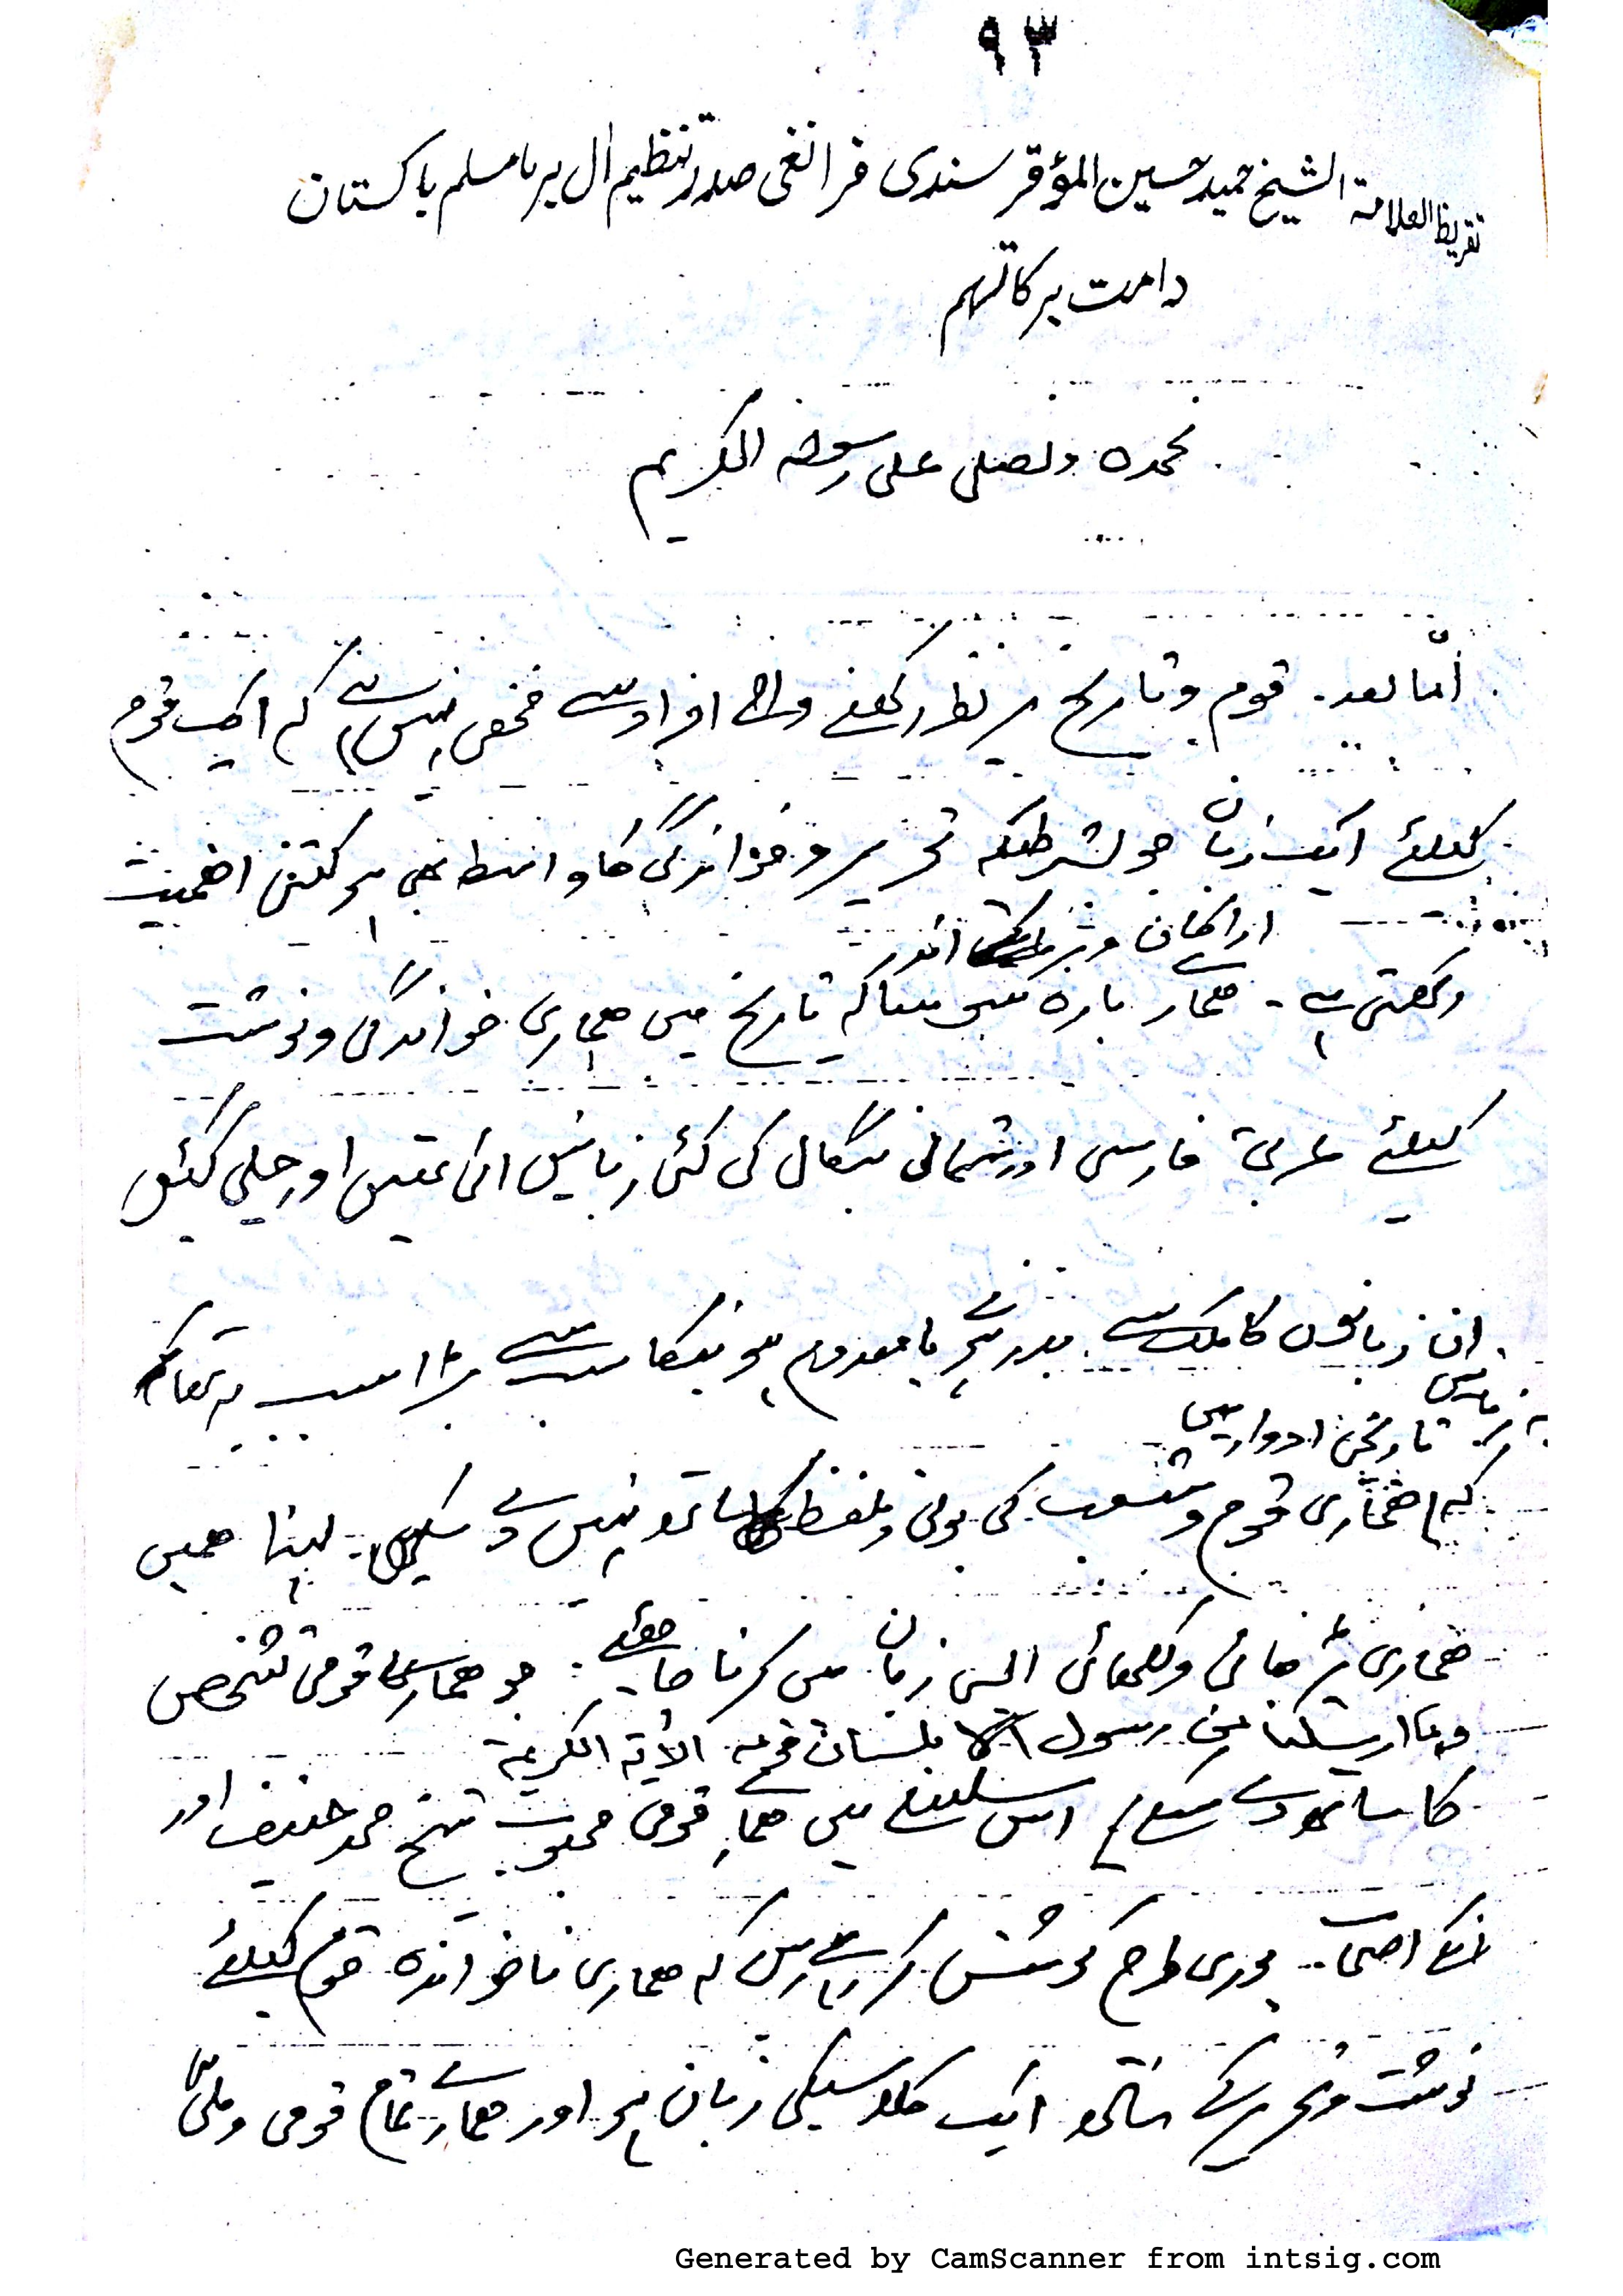 ۹۳
تقریظ العلامۃ الشیخ حمید حسین المؤقر سندی فرانغی صدر تنظیم ال برما مسلم پاکستان
دامت برکاتہم
نحمدہ ونصلی علی رسولہ الکریم
امّا بعد۔ قوم وتاریخ پر نظر رکھنے والے افراد سے مخفی نہیں ہے کہ ایک قوم
کیلئے ایک زبان جو بشرطیکہ تحریر وخواندگی کا واسطہ بھی ہو کتنی اھمیت
اراکان وبرما کے اندر
رکھتی ہے۔ ھمارے بارہ سو سالہ تاریخ میں ھماری خواندگی ونوشت
کیلئے عربی فارسی اور شمالی بنگال کی کئی زبانیں ائی تھیں اور چلی گئیں
ان زبانوں کا ملک سے بدر ہونے یا معدوم ہونیکا سب سے بڑا سبب یہ تھا کہ
یہ زبانیں تاریخی ادوار میں
کہ ھماری قوم وشعب کی بولی وتلفظ کا ساتھ نہیں دے سکیں۔ لہذا ھمیں
ھماری پڑھائی ولکھائی ایسی زبان میں کرنا چاہئے۔ جو ھماری قومی تشخص
وما ارسلنا من رسول الا بلسان قومہ الآیۃ الکریمۃ
کا ساتھ دے سکے۔ اس سلسلے میں ھمارے قومی محبوب شیخ محمد حنیف اور
انکے احباب پوری طرح کوشش کر رہے ہیں کہ ھماری ناخواندہ قوم کیلئے
نوشت وتحریر کے ساتھ ایک کلاسیکی زبان ہو اور ھمارے تمام قومی وملی
Generated by CamScanner from intsig.com